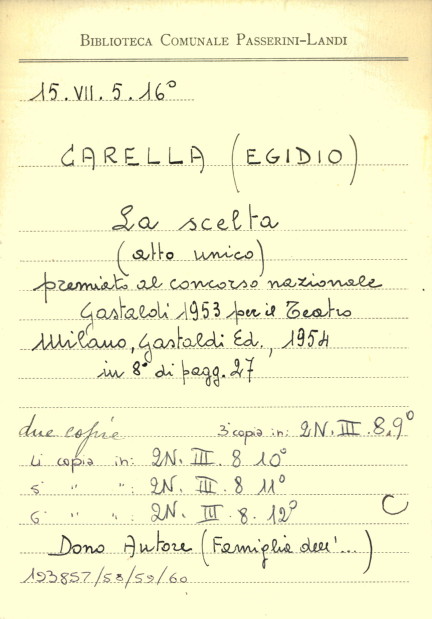 BIBLIOTECA COMUNALE PASSERINI-LANDI
15.VII.5.16°
CARELLA (EGIDIO)
La scelta
(atto unico)
premiato al concorso nazionale
Gastaldi 1953 per il Teatro
Milano, Gastaldi Ed., 1954
in 8° di pagg. 27
due copie 3 copia in: 2N. III. 8.9°
4 copia in: 2N. III. 8 10°
5 " " : 2N. III. 8 11°
6 " " : 2N. III. 8. 12°
C
Dono Autore (Famiglia dell'...)
193857/58/59/60